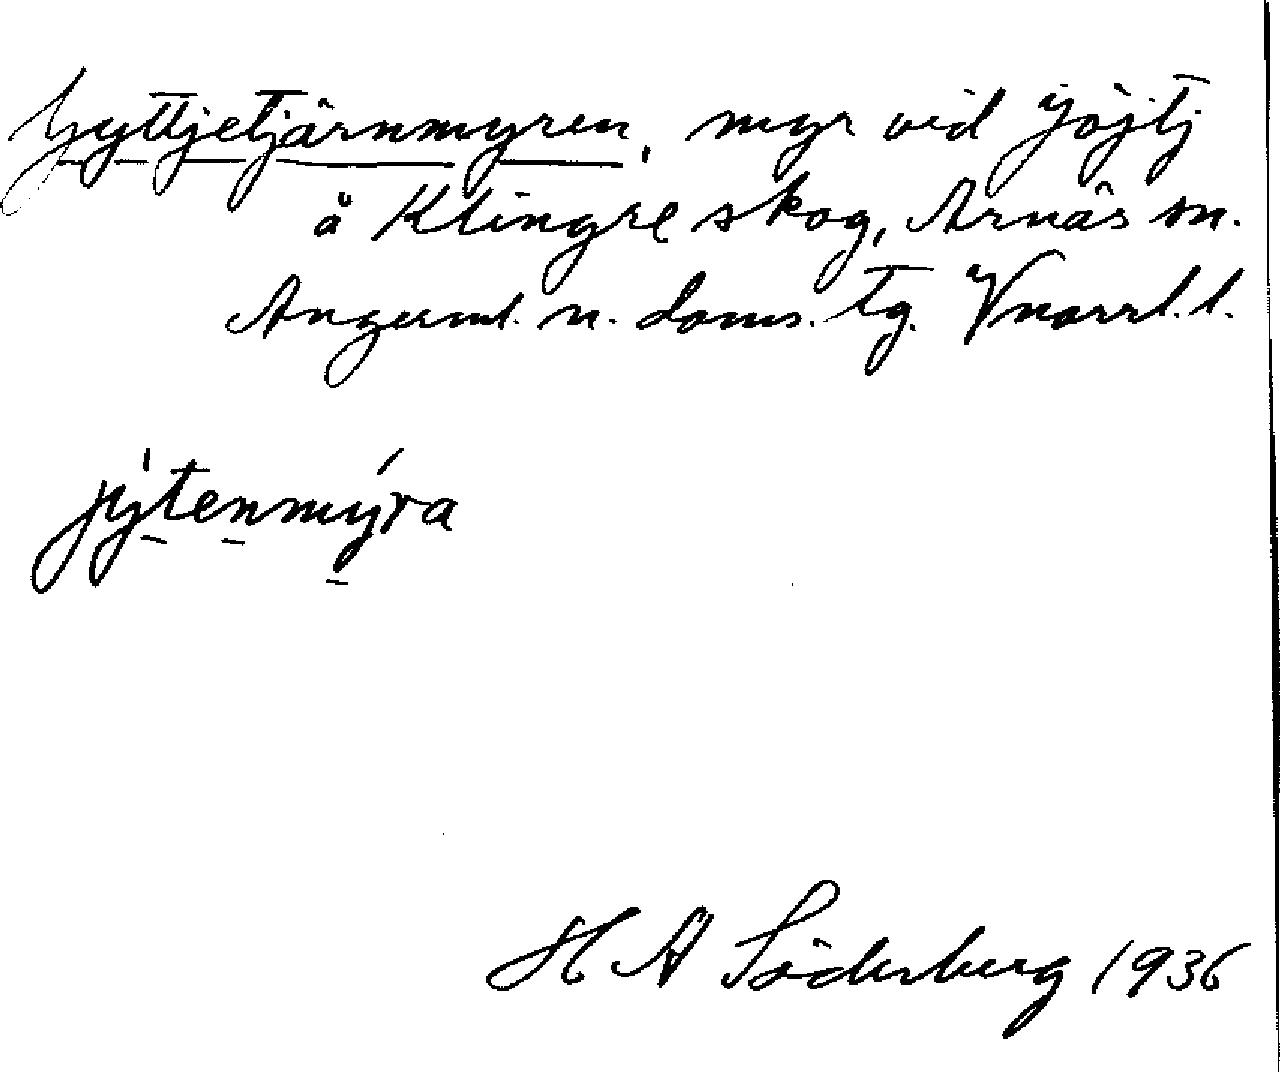 Gyttjetjärnmyren, myr vid Göjtj
å Klingre skog, Arnäs sn.
Ångerml. n. doms. tg. Vnorrl. l.
jýtenmýra
H A Söderberg 1936